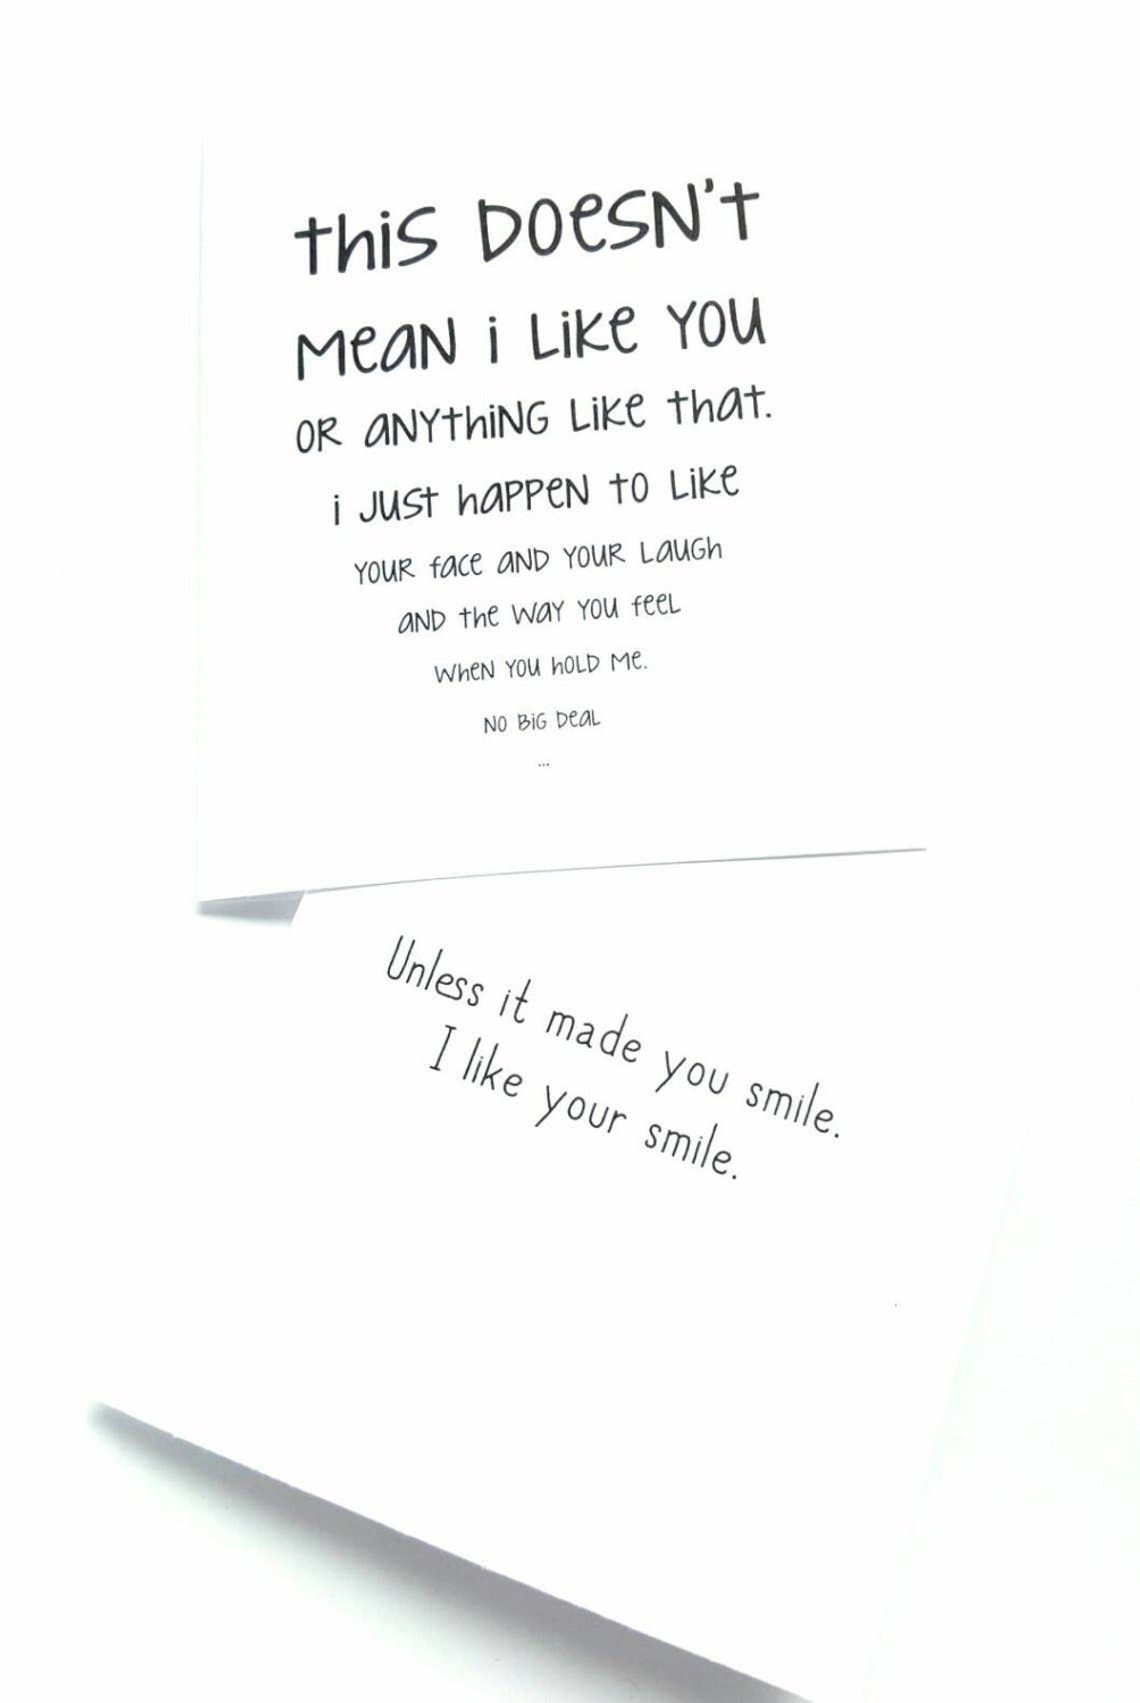 this DOESN't
MEAN i LiKE YOU
OR ANYthiNG LiKE that.
i JUSt haPPEN tO LiKE
YOUR face AND YOUR LaUGh
AND the WAY YOU feeL
WhEN YOU hOLD ME.
NO BiG DeaL
...
Unless it made you smile.
I like your smile.